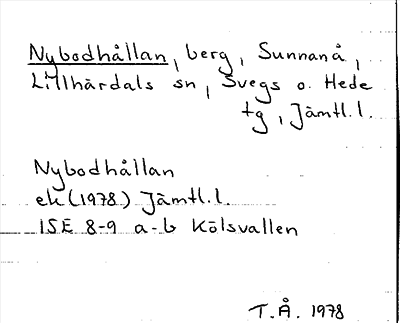 Nybodhållan, berg, Sunnanå,
Lillhärdals sn, Svegs o. Hede
tg, Jämtl. l.
Nybodhållan
ek (1978) Jämtl. l.
15E 8-9 a-b Kölsvallen
T.Å. 1978